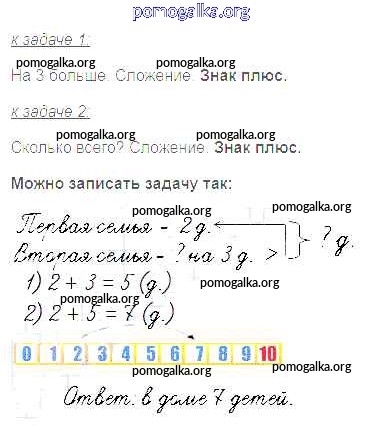 pomogalka.org
к задаче 1:
pomogalka.org pomogalka.org
На 3 больше. Сложение. Знак плюс.
к задаче 2:
pomogalka.org pomogalka.org
Сколько всего? Сложение. Знак плюс.
Можно записать задачу так:
pomogalka.org
Первая семья - 2 д.
pomogalka.org
Вторая семья - ? на 3 д. > ? д.
1) 2 + 3 = 5 (д.) pomogalka.org
pomogalka.org
2) 2 + 5 = 7 (д.)
pomogalka.org
0 1 2 3 4 5 6 7 8 9 10
pomogalka.org pomogalka.org
Ответ. в доме 7 детей.
pomogalka.org